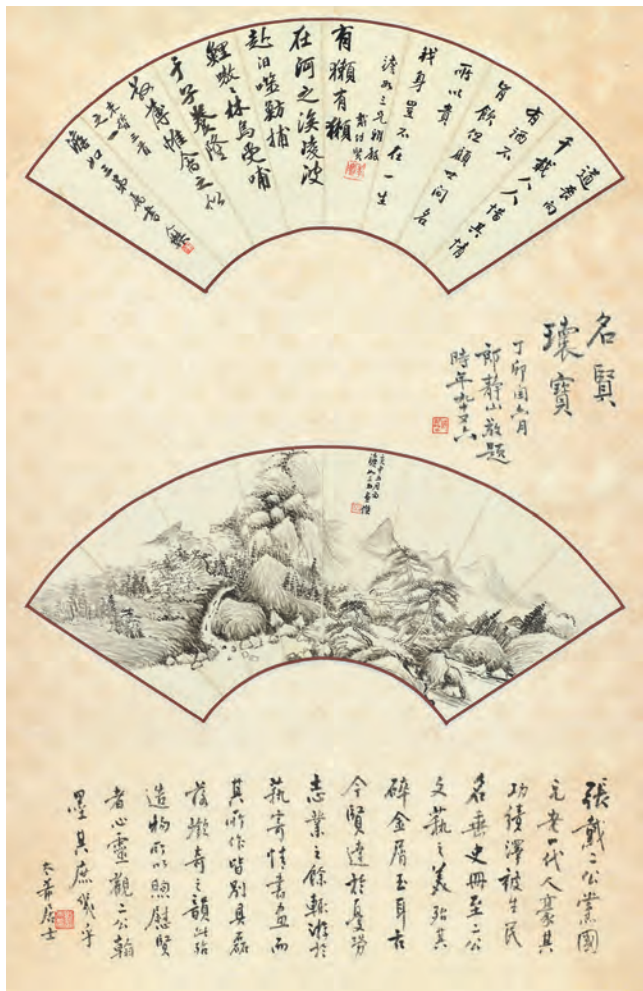 道喪向
千載人人惜其情
有酒不
肯飲但顧世間名
所以貴
我身豈不在一生
澹如三兄雅教
戴傳賢
有獺有獺
在河之涘凌波
赴汨噬魴捕
鯉嗷〻林烏受哺
于子養隆
敬薄惟禽之似
之一
澹如三弟屬書
名賢
瓌寶
丁卯閏六月
郎靜山敬題
時年九十又六
張戴二公黨國
元老一代人豪其
功績澤被生民
名垂史冊至二公
文藝之美殆其
碎金屑玉耳古
今賢達於憂勞
志業之餘輒游於
藝寄情書畫而
其所作皆別具磊
落嶔奇之韻此殆
造物所以煦慰賢
者心靈觀二公翰
墨其庶幾乎
太希居士